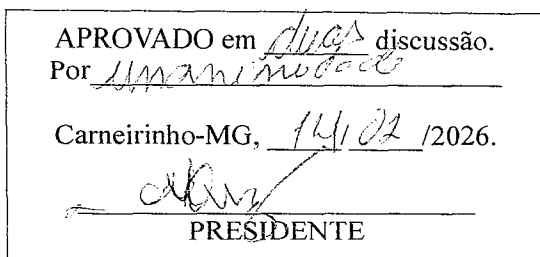 APROVADO em duas discussão.
Por unanimidade
Carneirinho-MG, 14/02 /2026.
PRESIDENTE